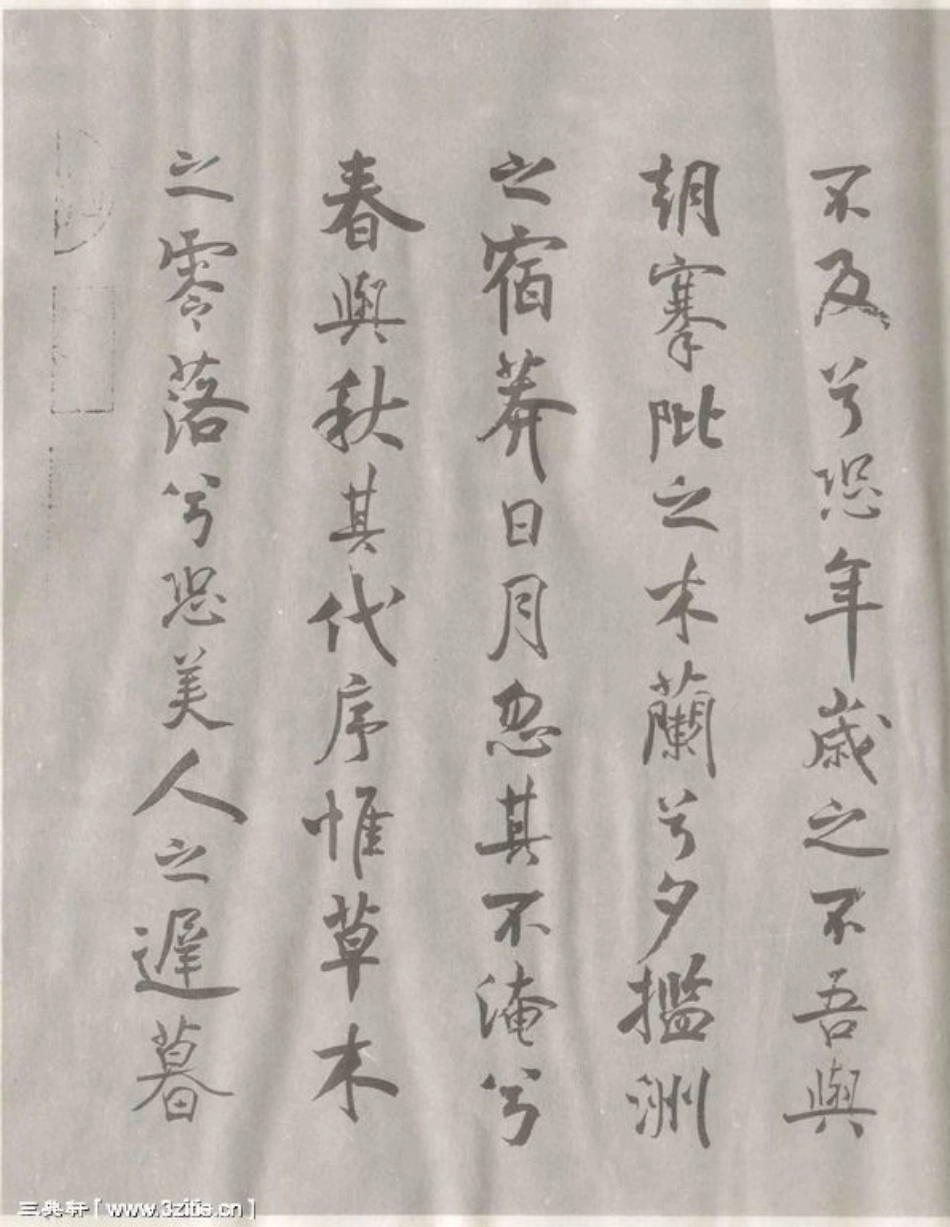 不及兮恐年歲之不吾與
朝搴阰之木蘭兮夕攬洲
之宿莽日月忽其不淹兮
春與秋其代序惟草木
之零落兮恐美人之遲暮
三典轩[www.3zitie.cn]